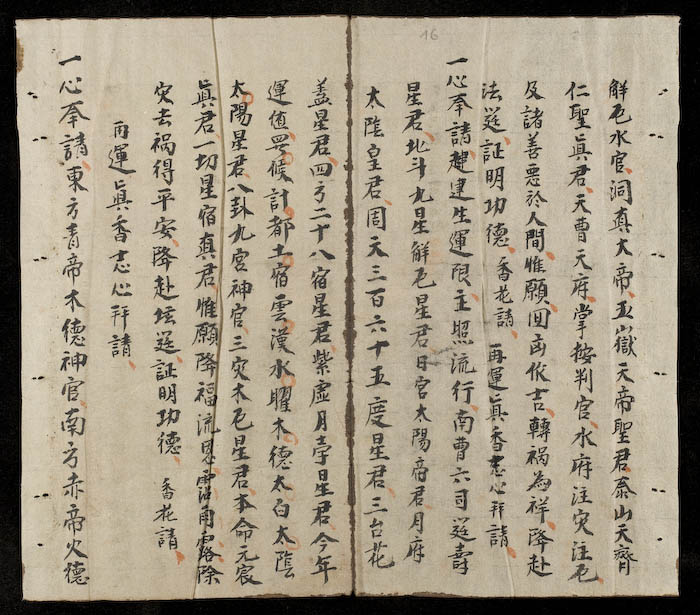 解厄水官、洞真大帝、五嶽天帝聖君、泰山天齊
仁聖真君、天曹天府掌按判官、水府注灾注厄
及諸善惡於人間、惟願、回凶作吉、轉禍為祥、降赴
法筵、証明功德、香花請、再運真香志心拜請、
一心奉請、建生運限主照流行、南曹六司延壽
星君、北斗九星解厄星君、日宮太陽帝君、月府
太陰皇君、周天三百六十五度星君、三台花
盖星君、四方二十八宿星君、紫虚月孛星君、今年
運值炁候、計都土宿雲漢水曜木德太白太陰
太陽星君、八卦九宮神官、三灾木厄星君、本命元宸
真君、一切星宿真君、惟願降福流恩、霑甬露、除
灾去禍得平安、降赴坛筵証明功德、香花請、
再運真香志心拜請、
一心奉請、東方青帝木德神官、南方赤帝火德
16